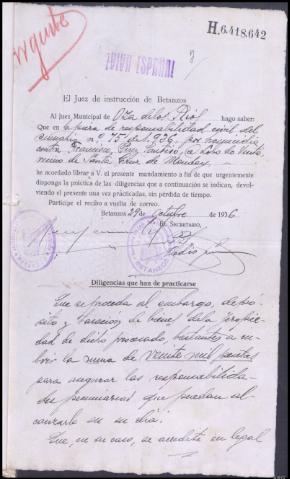 Urgente
H.6.418.642
¡VIVA ESPAÑA!
El Juez de instrucción de Betanzos
Al Juez Municipal de Oza de los Ríos hago saber:
Que en la pieza de responsabilidad civil del
sumario n.º 75 de 1936, por
contra Francisco
de Santa Cruz de Mondoy
he acordado librar a V. el presente mandamiento a fin de que urgentemente
disponga la práctica de las diligencias que a continuación se indican, devol-
viendo el presente una vez practicadas, sin pérdida de tiempo.
Participe el recibo a vuelta de correo.
Betanzos 29 de Octubre de 1936
EL SECRETARIO,
Diligencias que han de practicarse
Que se proceda al embargo, depó-
sito y tasación de bienes de la propie-
dad de dicho procesado, bastantes a cu-
brir la suma de veinte mil pesetas
para asegurar las responsabilida-
des pecuniarias que puedan al-
canzarle en su día.
Que, en su caso, se acredite en legal